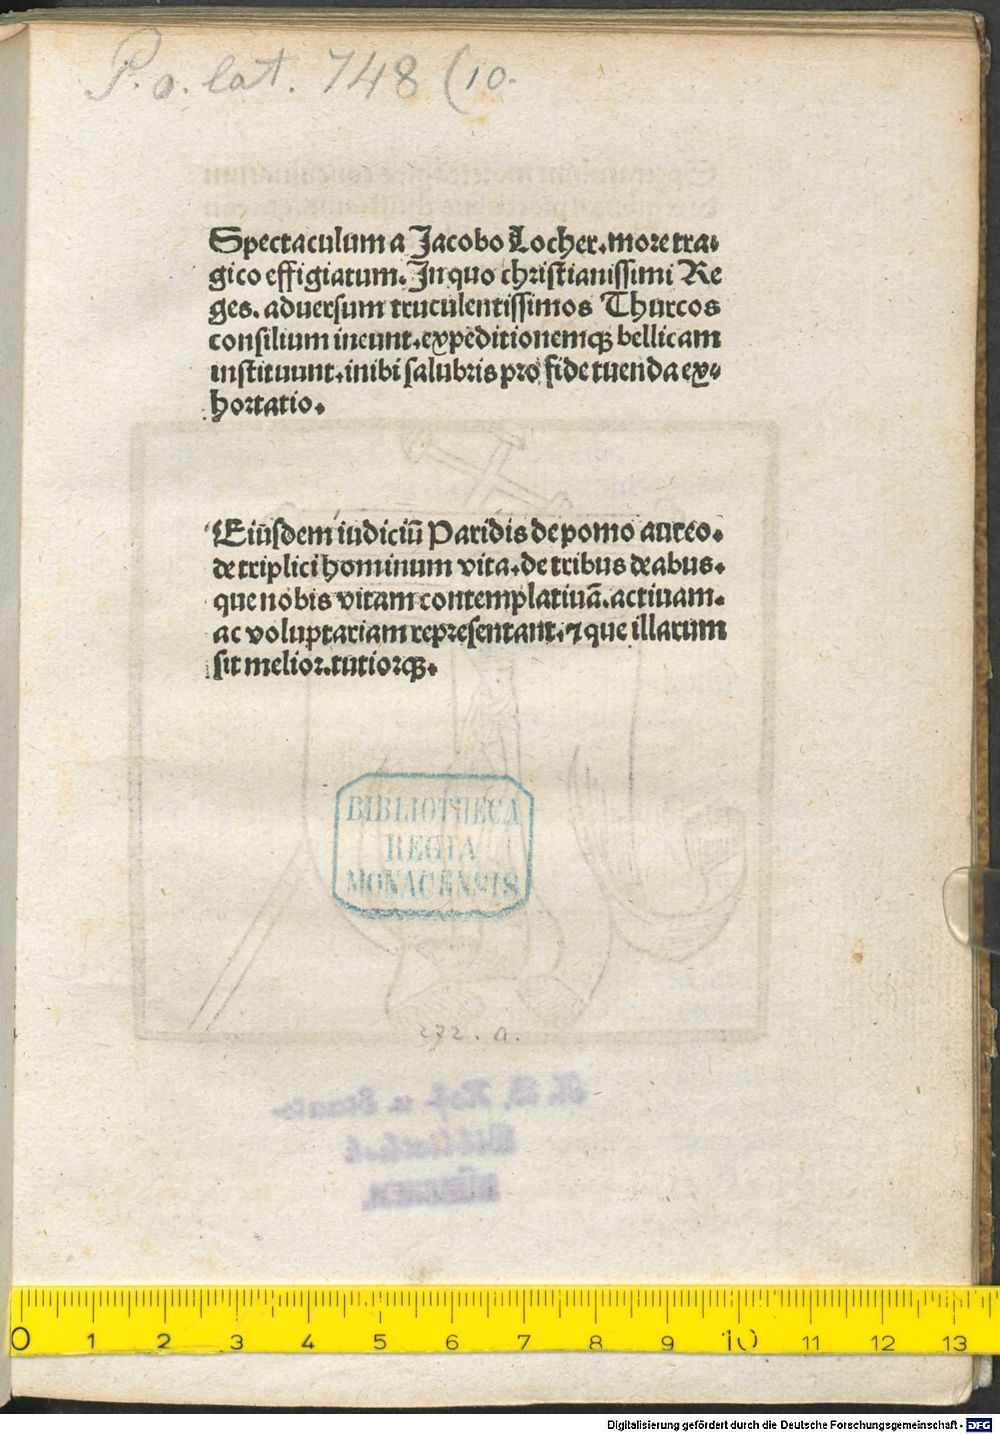 P.o.lat. 748 (10.
Spectaculum a Jacobo Locher.more tra⸗
gico effigiatum.In quo christianissimi Re
ges. aduersum truculentissimos Thurcos
consilium ineunt.expeditionemqꝫ bellicam
instituunt.inibi salubris pro fide tuenda ex⸗
hortatio.
Eiusdem iudiciū Paridis de pomo aureo.
de triplici hominum vita.de tribus deabus.
que nobis vitam contemplatiuā.actiuam.
ac voluptariam representant.⁊ que illarum
sit melior.tutiorqꝫ.
BIBLIOTHECA
REGIA
MONACENSIS
272. a.
0 1 2 3 4 5 6 7 8 9 10 11 12 13
Digitalisierung gefördert durch die Deutsche Forschungsgemeinschaft - DFG